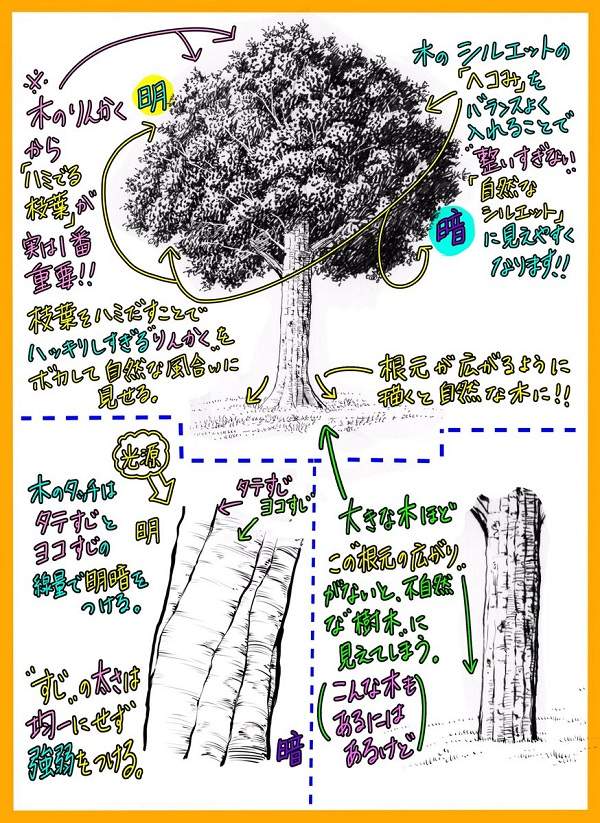 ※
木のりんかく
から
「ハミでる
枝葉」が
実は1番
重要!!
明
木の シルエットの
「ヘコみ」を
バランスよく
入れることで
"整いすぎない"
「自然な
シルエット」
に見えやすく
なります!!
暗
枝葉をハミだすことで
"ハッキリしすぎるりんかく"を
ボカして自然な風合いに
見せる。
根元が広がるように
描くと自然な木に!!
光源
明
木のタッチは
タテすじと
ヨコすじの
線量で明暗を
つける。
タテすじ
ヨコすじ
"すじ"の太さは
均一にせず
強弱をつける。
暗
大きな木ほど
この根元の広がり
がないと、不自然
な"樹木"に
見えてしまう。
(こんな木も
あるには
あるけど)